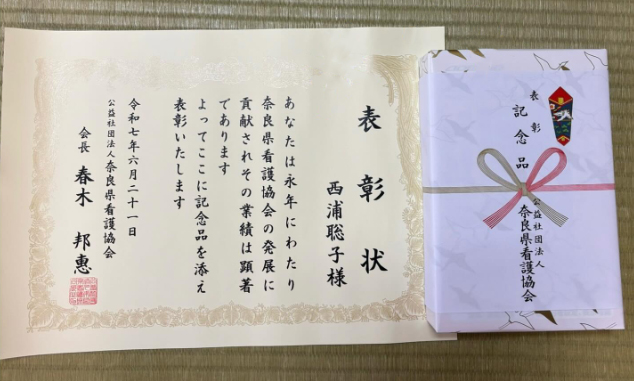 表彰状
西浦聡子様
あなたは永年にわたり
奈良県看護協会の発展に
貢献されその業績は顕著
であります
よってここに記念品を添え
表彰いたします
令和七年六月二十一日
公益社団法人奈良県看護協会
会長 春木 邦惠
表彰
記念品
公益社団法人
奈良県看護協会